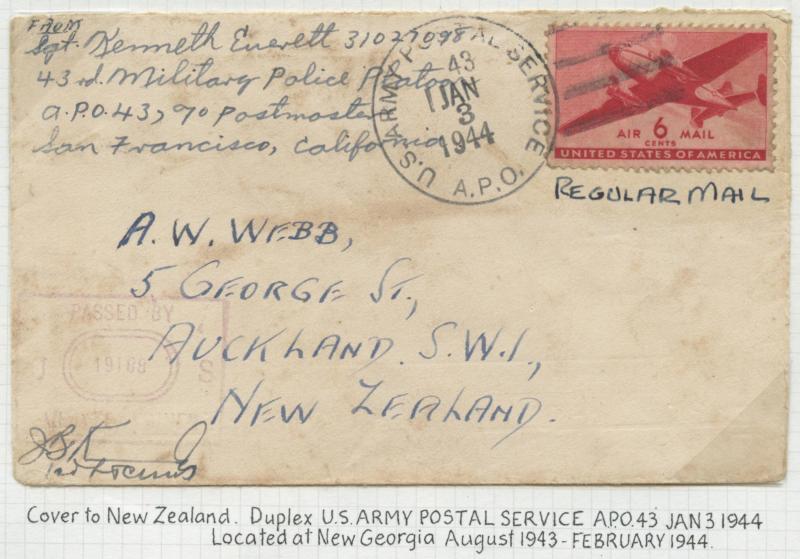 From
Sgt. Kenneth Everett 31027098
43rd. Military Police Platoon
A.P.O. 43, % Postmaster
San Francisco, California
U.S. ARMY POSTAL SERVICE
43
JAN
3
1944
A.P.O.
AIR 6 MAIL
CENTS
UNITED STATES OF AMERICA
REGULAR MAIL
A. W. WEBB,
5 GEORGE ST.,
AUCKLAND. S.W.1.,
NEW ZEALAND.
PASSED BY
S
Cover to New Zealand. Duplex U.S. ARMY POSTAL SERVICE A.P.O. 43 JAN 3 1944
Located at New Georgia August 1943 - FEBRUARY 1944.